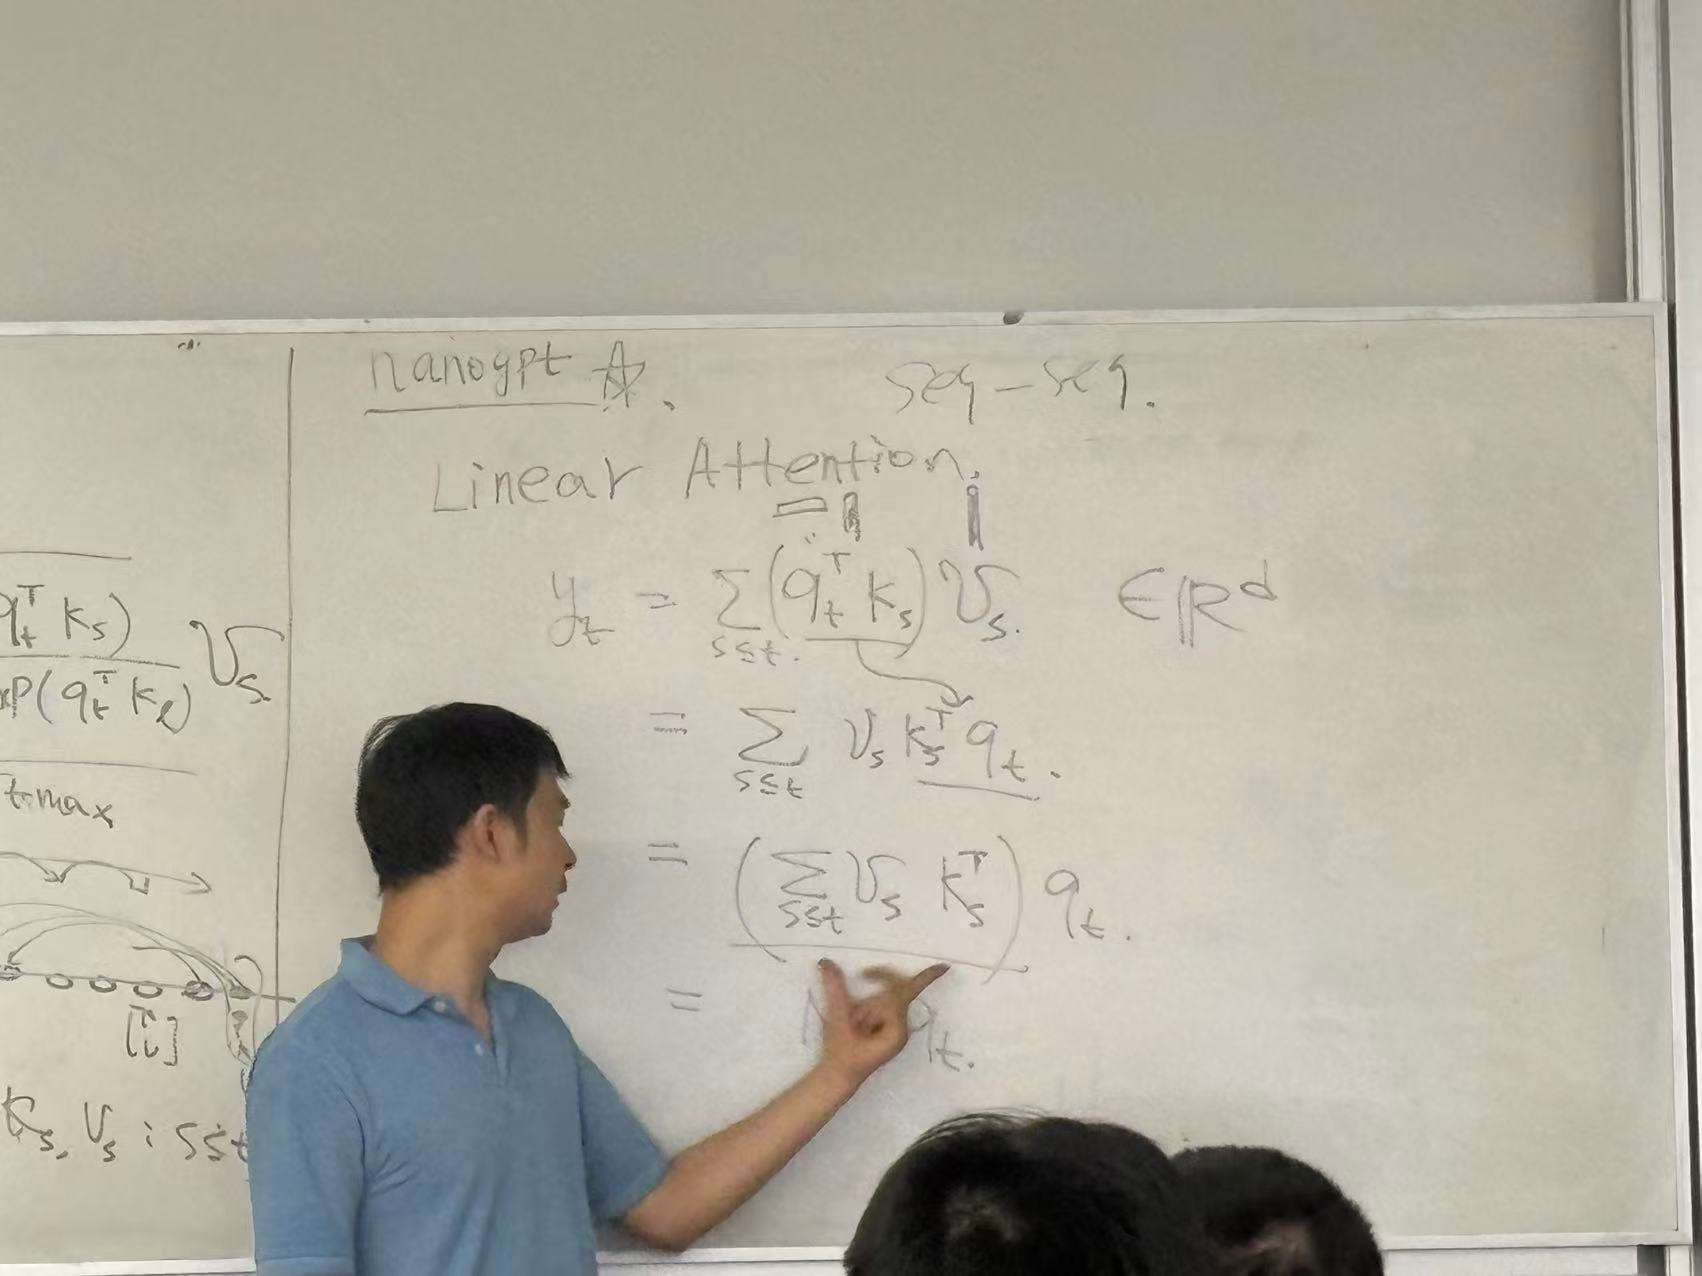 q_t^T k_s)
xp(q_t^T k_l)
v_s.
tmax
k_s, v_s : s≤t
nanogpt ☆.
seq-seq.
Linear Attention.
y_t = Σ_{s≤t.} (q_t^T k_s) v_s. ∈ ℝ^d
= Σ_{s≤t} v_s k_s^T q_t.
= (Σ_{s≤t} v_s k_s^T) q_t.
= q_t.